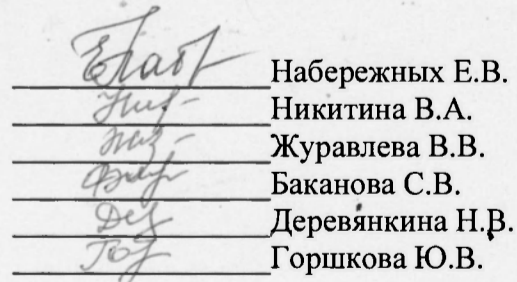 Набережных Е.В.
Никитина В.А.
Журавлева В.В.
Баканова С.В.
Деревянкина Н.В.
Горшкова Ю.В.